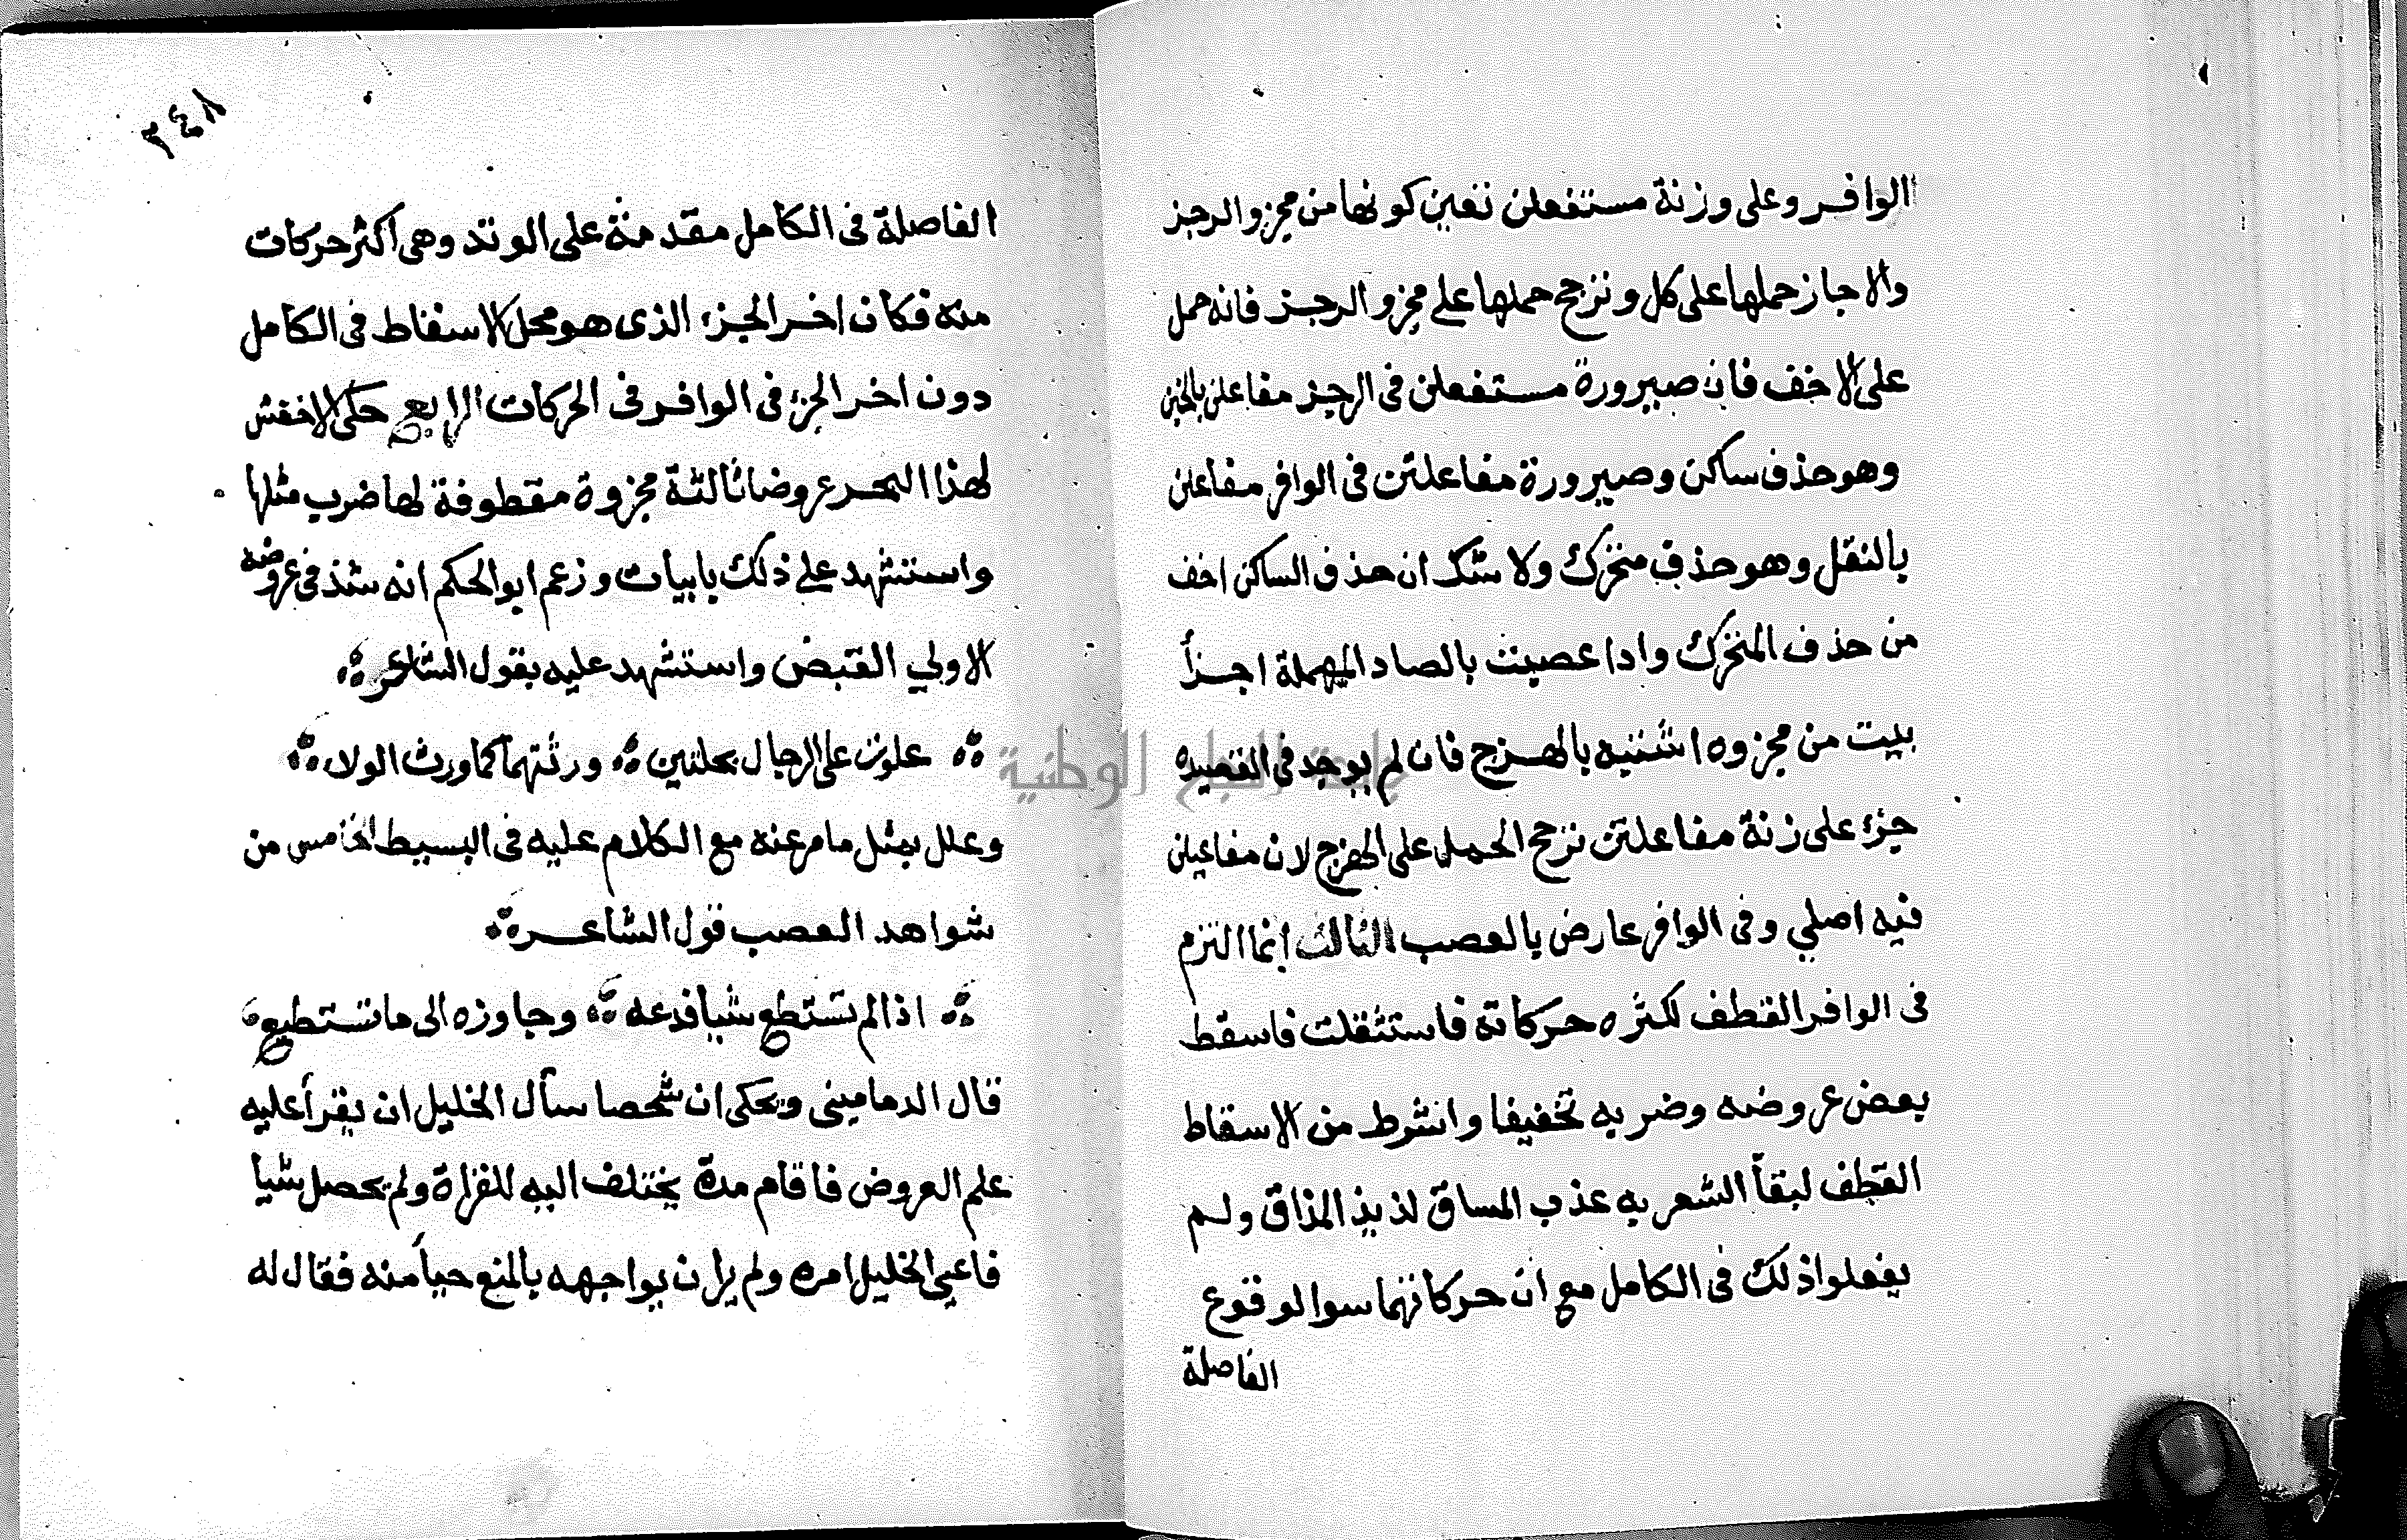 الوافر وعلى وزنة مستفعلن تعين كونها من مجزو الرجز
والا جاز حملها على كل ونزجح حملها على مجزو الرجز فانه حمل
على الاخف فان صيرورة مستفعلن فى الرجز مفاعلن بالخبن
وهو حذف ساكن وصيرورة مفاعلتن فى الوافر مفاعلن
بالنقل وهو حذف متحرك ولا شك ان حذف الساكن اخف
من حذف المتحرك واذا عصبت بالصاد المهملة اجزأ
بيت من مجزوه اشتبه بالهزج فان لم يوجد فى القصيده
جزء على زنة مفاعلتن نزجح الحمل على الهزج لان مفاعيلن
فيه اصلي وفى الوافر عارض بالعصب الثالث إنما التزم
فى الوافر القطف لكثره حركاته فاستثقلت فاسقط
بعض عروضه وضربه تخفيفا وانشرط من الاسقاط
القطف لبقأ الشعر به عذب المساق لذيذ المذاق ولم
يفعلوا ذلك فى الكامل مع ان حركاتهما سوا لوقوع
الفاصلة
٣٤٨
الفاصلة فى الكامل مقدمة على الوتد وهى اكثر حركات
منه فكان اخر الجزء الذى هو محل الاسقاط فى الكامل
دون اخر الجزء فى الوافر فى الحركات الرابع حكى الاخفش
لهذا البحر عروضا ثالثة مجزوة مقطوفة لها ضرب مثلها
واستشهد على ذلك بابيات وزعم ابو الحكم انه شذ فى عروضه
الاولي القبض واستشهد عليه بقول الشاعر
علوت على الرجال بخلتين ورثتهما كما ورث الولاء
وعلل بمثل ما مر عنه مع الكلام عليه فى البسيط الخامس من
شواهد العصب قول الشاعر
اذا لم تستطع شيا فدعه وجاوزه الى ما تستطيع
قال الدمامينى ويحكى ان شخصا سأل الخليل ان يقرأ عليه
علم العروض فاقام مدة يختلف اليه للقراة ولم يحصل شيا
فاعيى الخليل امره ولم ير ان يواجهه بالمنع حيأ منه فقال له
جامعة النجاح الوطنية